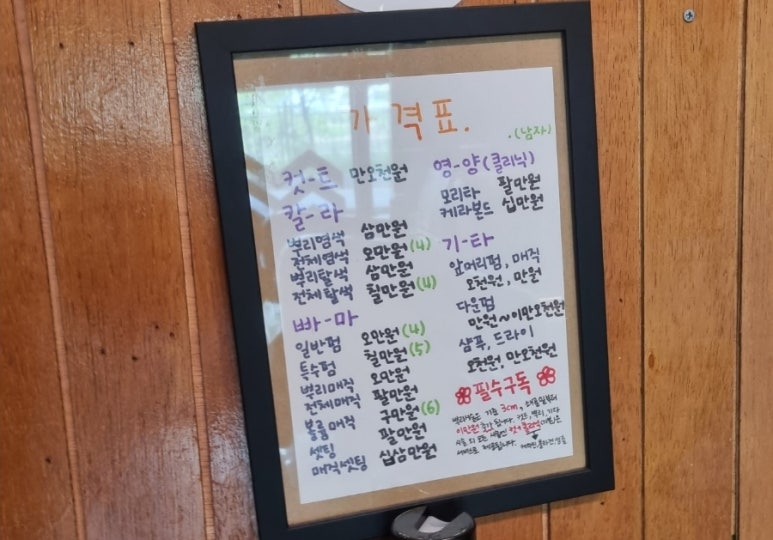 가격표.
.(남자)
컷-트 만오천원
칼-라
뿌리염색 삼만원
전체염색 오만원(4)
뿌리탈색 삼만원
전체탈색 칠만원(4)
빠-마
일반펌 오만원(4)
특수펌 칠만원(5)
뿌리매직 오만원
전체매직 팔만원
볼륨매직 구만원(6)
셋팅 팔만원
매직셋팅 십삼만원
영-양(클리닉)
모리타 팔만원
케라본드 십만원
기-타
앞머리펌, 매직
오천원, 만원
다운펌
만원~이만오천원
샴푸, 드라이
오천원, 만오천원
필수구독
기준 3cm,
이만원 추가 됩니다. 컷트, 뿌리, 기타